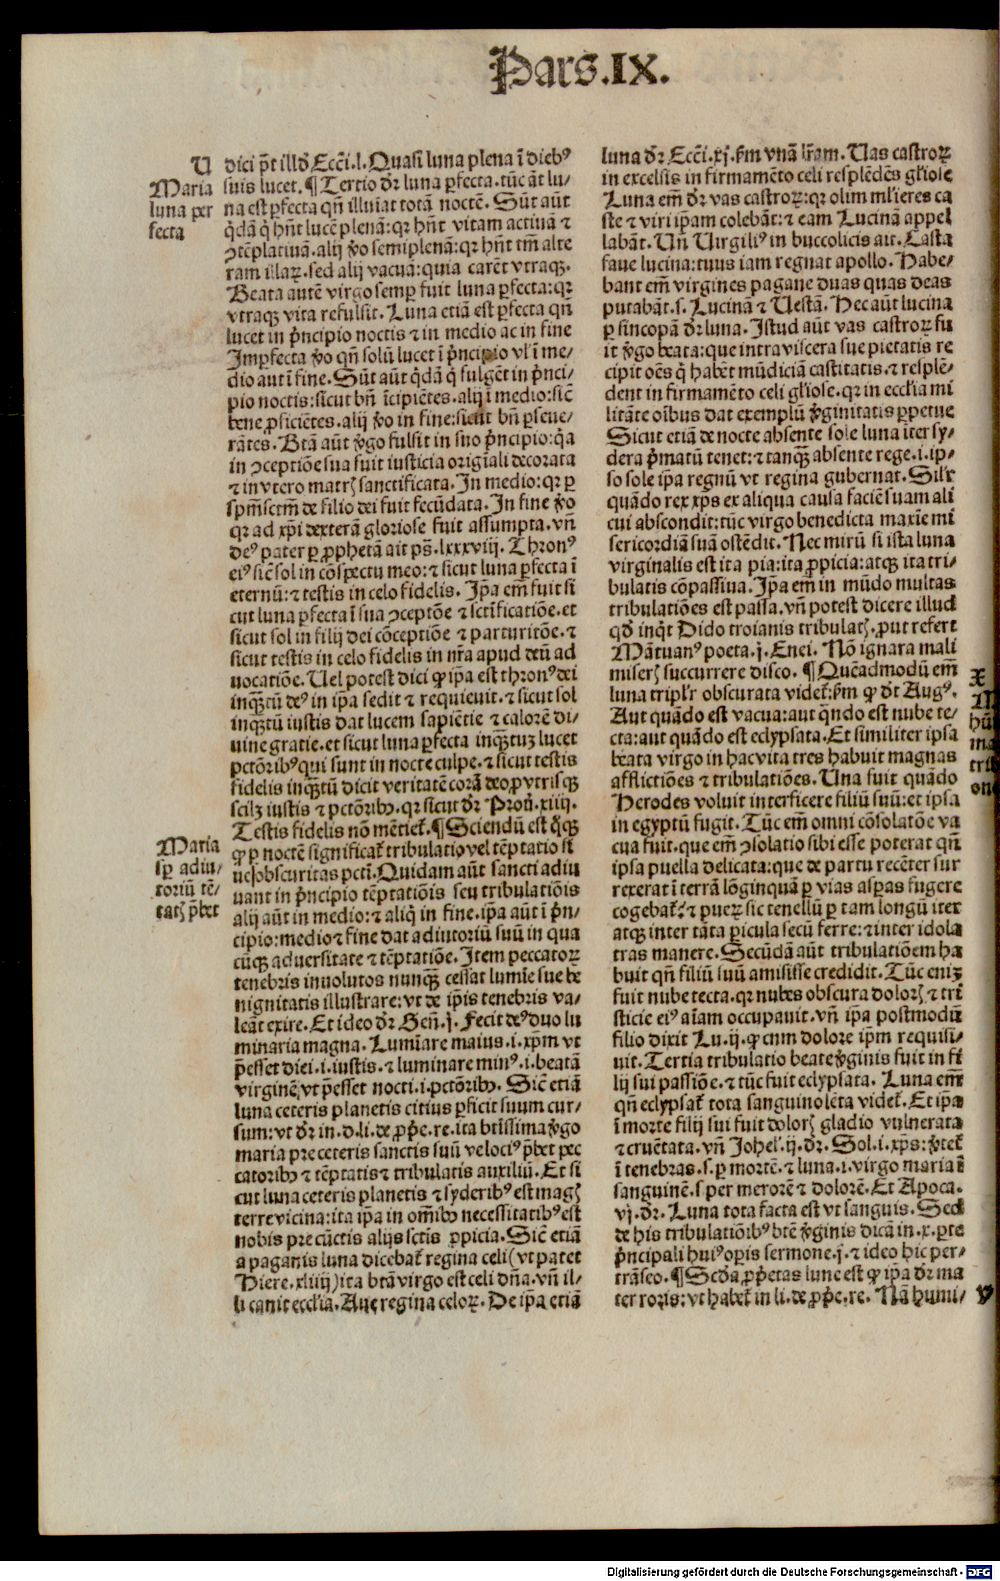 Pars.IX.
U
Maria
luna per
fecta
dici pōt illḋ Ecc̄i.l. Quasi luna plena ī dieb⁹
suis lucet. ¶ Tertio dr̄ luna ꝑfecta. tūc āt lu-
na est ꝑfecta qn̄ illuīat totā noctē. Sūt aūt
q̄dā q̄ hn̄t lucē plenā: qꝛ hn̄t vitam actiuā ⁊
ↄtēplatiuā. alij ṽo semiplenā: qꝛ hn̄t tm̄ alte
ram illaꝝ. sed alij vacuā: quia carēt vtraqꝫ.
Beata autē virgo semꝑ fuit luna ꝑfecta: qꝛ
vtraqꝫ vita refulsit. Luna etiā est ꝑfecta qn̄
lucet in p̄ncipio noctis ⁊ in medio ac in fine
Imꝑfecta ṽo qn̄ solū lucet ī p̄ncipio vl̄ ī me-
dio aut ī fine. Sūt aūt q̄dā q̄ fulgēt in p̄nci-
pio noctis: sicut bn̄ īcipiētes. alij ī medio: sic̄
bene ꝓficiētes. alij ṽo in fine: sicut bn̄ ꝑseue-
rātes. Btā aūt ṽgo fulsit in suo p̄ncipio: q̄a
in ↄceptiōe sua fuit iusticia oriḡiali decorata
⁊ in vtero matrꝭ sanctificata. In medio: qꝛ ꝑ
spm̄sctm̄ de filio dei fuit fecūdata. In fine ṽo
qꝛ ad xp̄i dexterā gloriose fuit assumpta. vn̄
de⁹ pater ꝑ ꝓphetā ait ps̄. lxxxviij. Thron⁹
ei⁹ sic̄ sol in cōspectu meo: ⁊ sicut luna ꝑfecta ī
eternū: ⁊ testis in celo fidelis. Ip̄a em̄ fuit si
cut luna ꝑfecta ī sua ↄceptōe ⁊ sctīficatiōe. et
sicut sol in filij dei cōceptiōe ⁊ parturitōe. ⁊
sicut testis in celo fidelis in nr̄a apud deū ad
uocatiōe. Uel potest dici ꝙ ip̄a est thron⁹ dei
inqꝫtū de⁹ in ip̄a sedit ⁊ requieuit. ⁊ sicut sol
inqꝫtū iustis dat lucem sapiētie ⁊ calorē di-
uine gratie. et sicut luna ꝑfecta inqꝫtuꝫ lucet
pctōrib⁹ qui sunt in nocte culpe. ⁊ sicut testis
fidelis inqꝫtū dicit veritatē corā deo, ꝓ vtrisqꝫ
scilꝫ iustis ⁊ pctōribꝰ. qꝛ sicut dr̄ Prou̇. xiiij.
Testis fidelis nō mētieť. ¶ Sciendū est q̄qꝫ
Maria
sꝑ adiu-
toriū tē-
tatꝭ p̄bet
ꝙ ꝑ noctē significať tribulatio vel tēptatio si
ue obscuritas pctī. Quidam aūt sancti adiu
uant in p̄ncipio tēptatiōis seu tribulatiōis
alij aūt in medio: ⁊ aliq̄ in fine. ip̄a aūt ī p̄n-
cipio: medio ⁊ fine dat adiutoriū suū in qua
cūqꝫ aduersitate ⁊ tēptatiōe. Item peccatoꝝ
tenebris inuolutos nunqꝫ cessat lumīe sue be
nignitatis illustrare: vt de ip̄is tenebris va-
leāt exire. Et ideo dr̄ Gen̄. j. Fecit de⁹ duo lu
minaria magna. Lumīare maius. i. xp̄m vt
p̄esset diei. i. iustis. ⁊ luminare min⁹. i. beatā
virginē vt p̄esset nocti. i. pctōribꝰ. Sic̄ etiā
luna ceteris planetis citius ꝑficit suum cur-
sum: vt dr̄ in. d. li. de ꝓp̄e. re. ita btīssima ṽgo
maria pre ceteris sanctis suū veloci⁹ p̄bet pec
catoribꝰ ⁊ tēptatis ⁊ tribulatis auxiliū. Et si
cut luna ceteris planetis ⁊ syderib⁹ est magꝭ
terre vicina: ita ip̄a in om̄ibꝰ necessitatib⁹ est
nobis pre cūctis alijs sctīs ꝓpicia. Sic̄ etiā
a paganis luna dicebať regina celi (vt patet
Hiere. xliiij) ita btā virgo est celi dn̄a. vn̄ il-
li canit eccl̄ia. Aue regina celoꝝ. De ip̄a etiā
luna dr̄ Ecc̄i. xj. ẜm vnā lr̄am. Uas castroꝝ
in excelsis in firmamēto celi resplēdēs gl̄iose
Luna em̄ dr̄ vas castroꝝ: qꝛ olim ml̄ieres ca
ste ⁊ viri ip̄am colebāt: ⁊ eam Lucinā appel
labāt. Un̄ Uirgili⁹ in buccolicis ait. Casta
faue lucina: tuus iam regnat apollo. Habe-
bant em̄ virgines pagane duas quas deas
putabāt. s. Lucinā ⁊ Uestā. Hec aūt lucina
ꝑ sincopā dr̄ luna. Istud aūt vas castroꝝ fu
it ṽgo beata: que intra viscera sue pietatis re
cipit oēs q̄ habēt mūdiciā castitatis. ⁊ resplē-
dent in firmamēto celi gl̄iose. qꝛ in eccl̄ia mi
litāte oībus dat exemplū ṽginitatis ꝑpetue
Sicut etiā de nocte absente sole luna īter sy-
dera p̄matū tenet: ⁊ tanqꝫ absente rege. i. ip-
so sole ip̄a regnū vt regina gubernat. Sil̄r
quādo rex xp̄s ex aliqua causa faciē suam ali
cui abscondit: tūc virgo benedicta maxīe mi
sericordiā suā ostēdit. Nec mirū si ista luna
virginalis est ita pia: ita ꝓpicia: atqꝫ ita tri-
bulatis cōpassiua. Ip̄a em̄ in mūdo multas
tribulatiōes est passa. vn̄ potest dicere illud
qḋ inq̄t Dido troianis tribulatꝭ. ꝓut refert
Mātuan⁹ poeta. j. Enei. Nō ignara mali
miserꝭ succurrere disco. ¶ Quēadmodū em̄
luna tripl̄r obscurata videť: ẜm ꝙ dt̄ Aug⁹.
Aut quādo est vacua: aut q̄ndo est nube te-
cta: aut quādo est eclypsata. Et similiter ipsa
beata virgo in hac vita tres habuit magnas
afflictiōes ⁊ tribulatiōes. Una fuit quādo
Herodes voluit interficere filiū suū: et ipsa
in egyptū fugit. Tūc em̄ omni cōsolatōe va
cua fuit. que em̄ ↄsolatio sibi esse poterat qn̄
ipsa puella delicata: que de partu recēter sur
rexerat ī terrā lōginquā ꝑ vias asꝑas fugere
cogebať: ⁊ pueꝝ sic tenellū ꝑ tam longū iter
atqꝫ inter tāta ꝑicula secū ferre: ⁊ inter idola
tras manere. Secūdā aūt tribulatiōem ha
buit qn̄ filiū suū amisisse credidit. Tūc eniꝫ
fuit nube tecta. qꝛ nubes obscura dolorꝭ ⁊ tri
sticie ei⁹ aīam occupauit. vn̄ ip̄a postmodū
filio dixit Lu. ij. ꝙ cum dolore ip̄m requisi-
uit. Tertia tribulatio beate ṽginis fuit in fi
lij sui passiōe. ⁊ tūc fuit eclypsata. Luna em̄
qn̄ eclypsať tota sanguinolēta videť. Et ip̄a
ī morte filij sui fuit dolorꝭ gladio vulnerata
⁊ cruētata. vn̄ Johel̄. ij. dr̄. Sol. i. xp̄s: ṽteť
ī tenebras. s. ꝑ mortē. ⁊ luna. i. virgo maria ī
sanguinē. s per merorē ⁊ dolorē. Et Apoca.
vj. dr̄. Luna tota facta est vt sanguis. Sed
de his tribulatiōib⁹ btē ṽginis dicā in. x. ꝑte
p̄ncipali hui⁹ oꝑis sermone. j. ⁊ ideo hic per-
trāseo. ¶ Scḋa ꝓp̄etas lune est ꝙ ip̄a dr̄ ma
ter roris: vt habeť in li. de ꝓp̄e. re. Nā humi-
X
tri
y